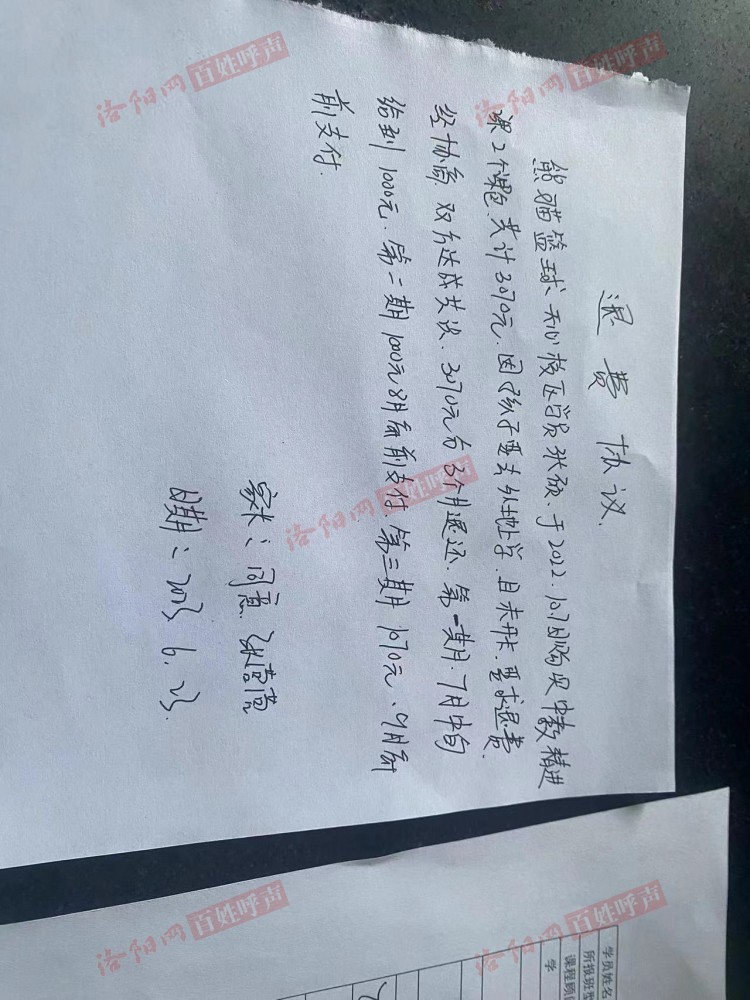 退费协议
熊猫篮球天心校区学员张硕、于2022.10.7日购买中教精进
课2个课包、共计3070元、因孩子要去外地上学、且未开卡、要求退费、
经协商、双方达成共识、3070元分3个月退还、第一期、7月中旬
给到1000元、第二期1000元8月底前支付、第三期1070元、9月底
前支付.
家长：同意
日期：2023.6.23.
学员姓名
所报班型
课程顾
学
洛阳网 百姓呼声
洛阳网 百姓呼声
洛阳网 百姓呼声
洛阳网 百姓呼声
洛阳网 百姓呼声